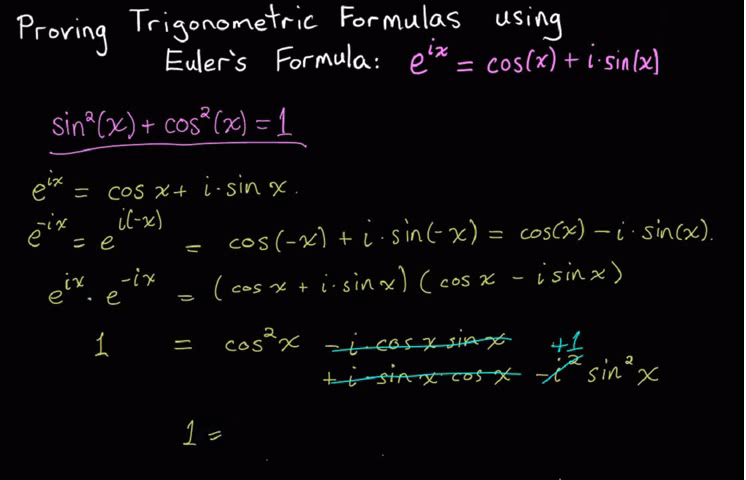 Proving Trigonometric Formulas using
Euler's Formula: e^{ix} = cos(x) + i·sin(x)
sin²(x) + cos²(x) = 1
e^{ix} = cos x + i·sin x.
e^{-ix} = e^{i(-x)} = cos(-x) + i·sin(-x) = cos(x) - i·sin(x).
e^{ix} · e^{-ix} = (cos x + i·sin x)(cos x - i sin x)
1 = cos²x - i·cos x sin x +1
+ i·sin x·cos x - i² sin²x
1 =